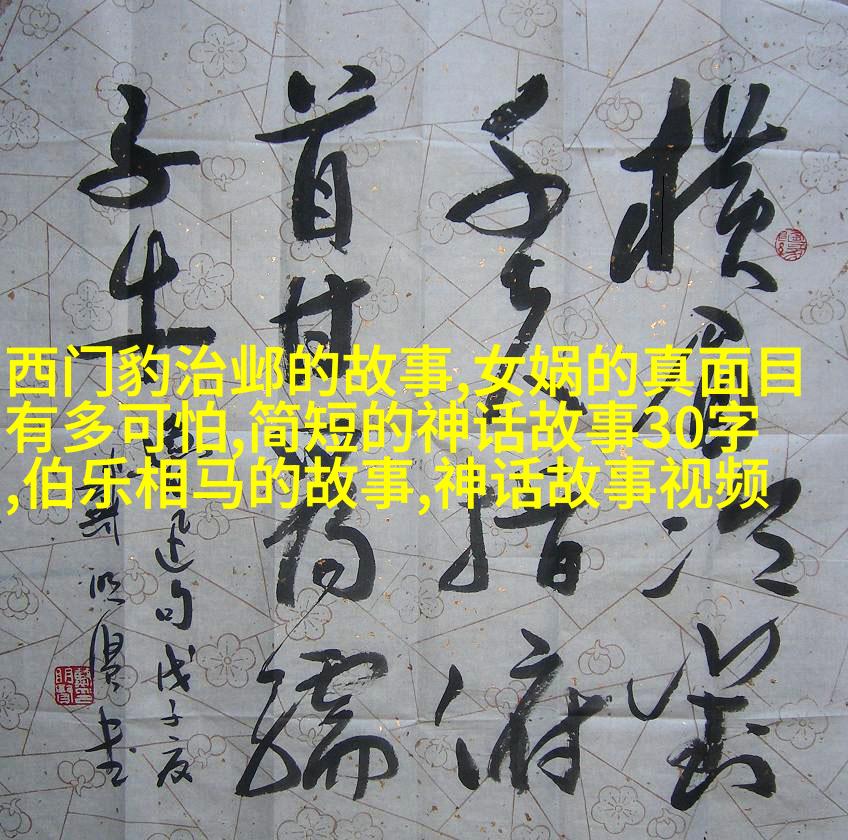 西门豹治邺的故事,女娲的真面目
有多可怕,简短的神话故事30字
,伯乐相马的故事,神话故事视频
横眉冷對
千夫指俯
首甘為孺
子牛
迅句戊子夏
书